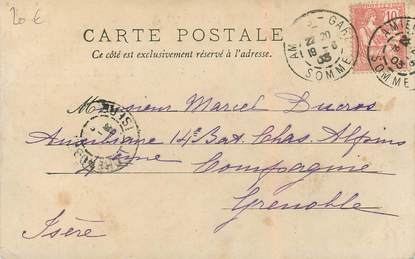 20 €
CARTE POSTALE
Ce côté est exclusivement réservé à l'adresse.
GARE
22 20
19 - 6
03
SOMME
10
AMIENS
03
SOMME
Monsieur Marcel Ducros
Auxiliaire 14e Bat. Chas. Alpins
Compagnie
Grenoble
Isère
ISERE
GRENOBLE